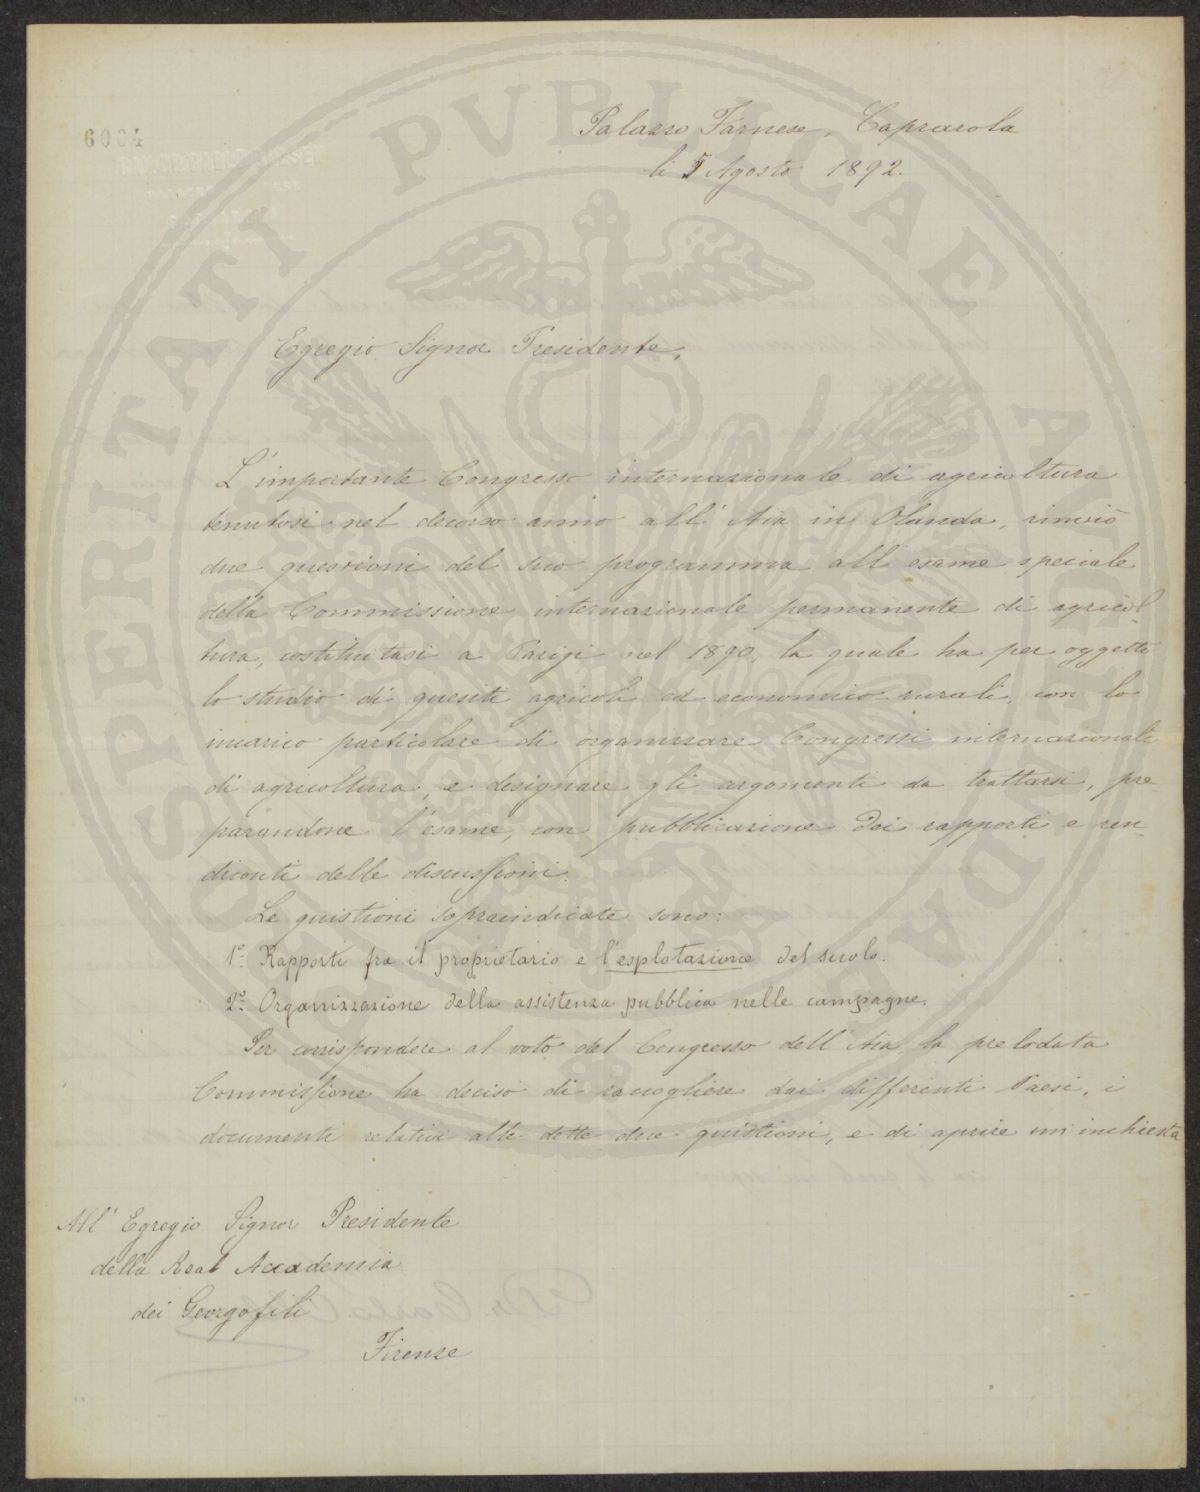 6004
Palazzo Farnese, Caprarola
li 5 Agosto 1892.
Egregio Signor Presidente,
L'importante Congresso internazionale di agricoltura
tenutosi nel decorso anno all'Aia in Olanda, rinviò
due questioni del suo programma all'esame speciale
della Commissione internazionale permanente di agricol
tura, costituitasi a Parigi nel 1890, la quale ha per oggetto
lo studio di quesiti agricoli ed economico rurali, con lo
incarico particolare di organizzare Congressi internazionali
di agricoltura, e designare gli argomenti da trattarsi, pre
parandone l'esame, con pubblicazione dei rapporti e ren
diconti delle discussioni.
Le quistioni sopraindicate sono:
1º. Rapporti fra il proprietario e l'esplotazione del suolo.
2º. Organizzazione della assistenza pubblica nelle campagne.
Per corrispondere al voto del Congresso dell'Aia, la prelodata
Commissione ha deciso di raccogliere dai differenti Paesi, i
documenti relativi alle dette due quistioni, e di aprire un'inchiesta
All'Egregio Signor Presidente
della Real Accademia
dei Georgofili
Firenze
PROSPERITATI PVBLICAE AVGENDAE